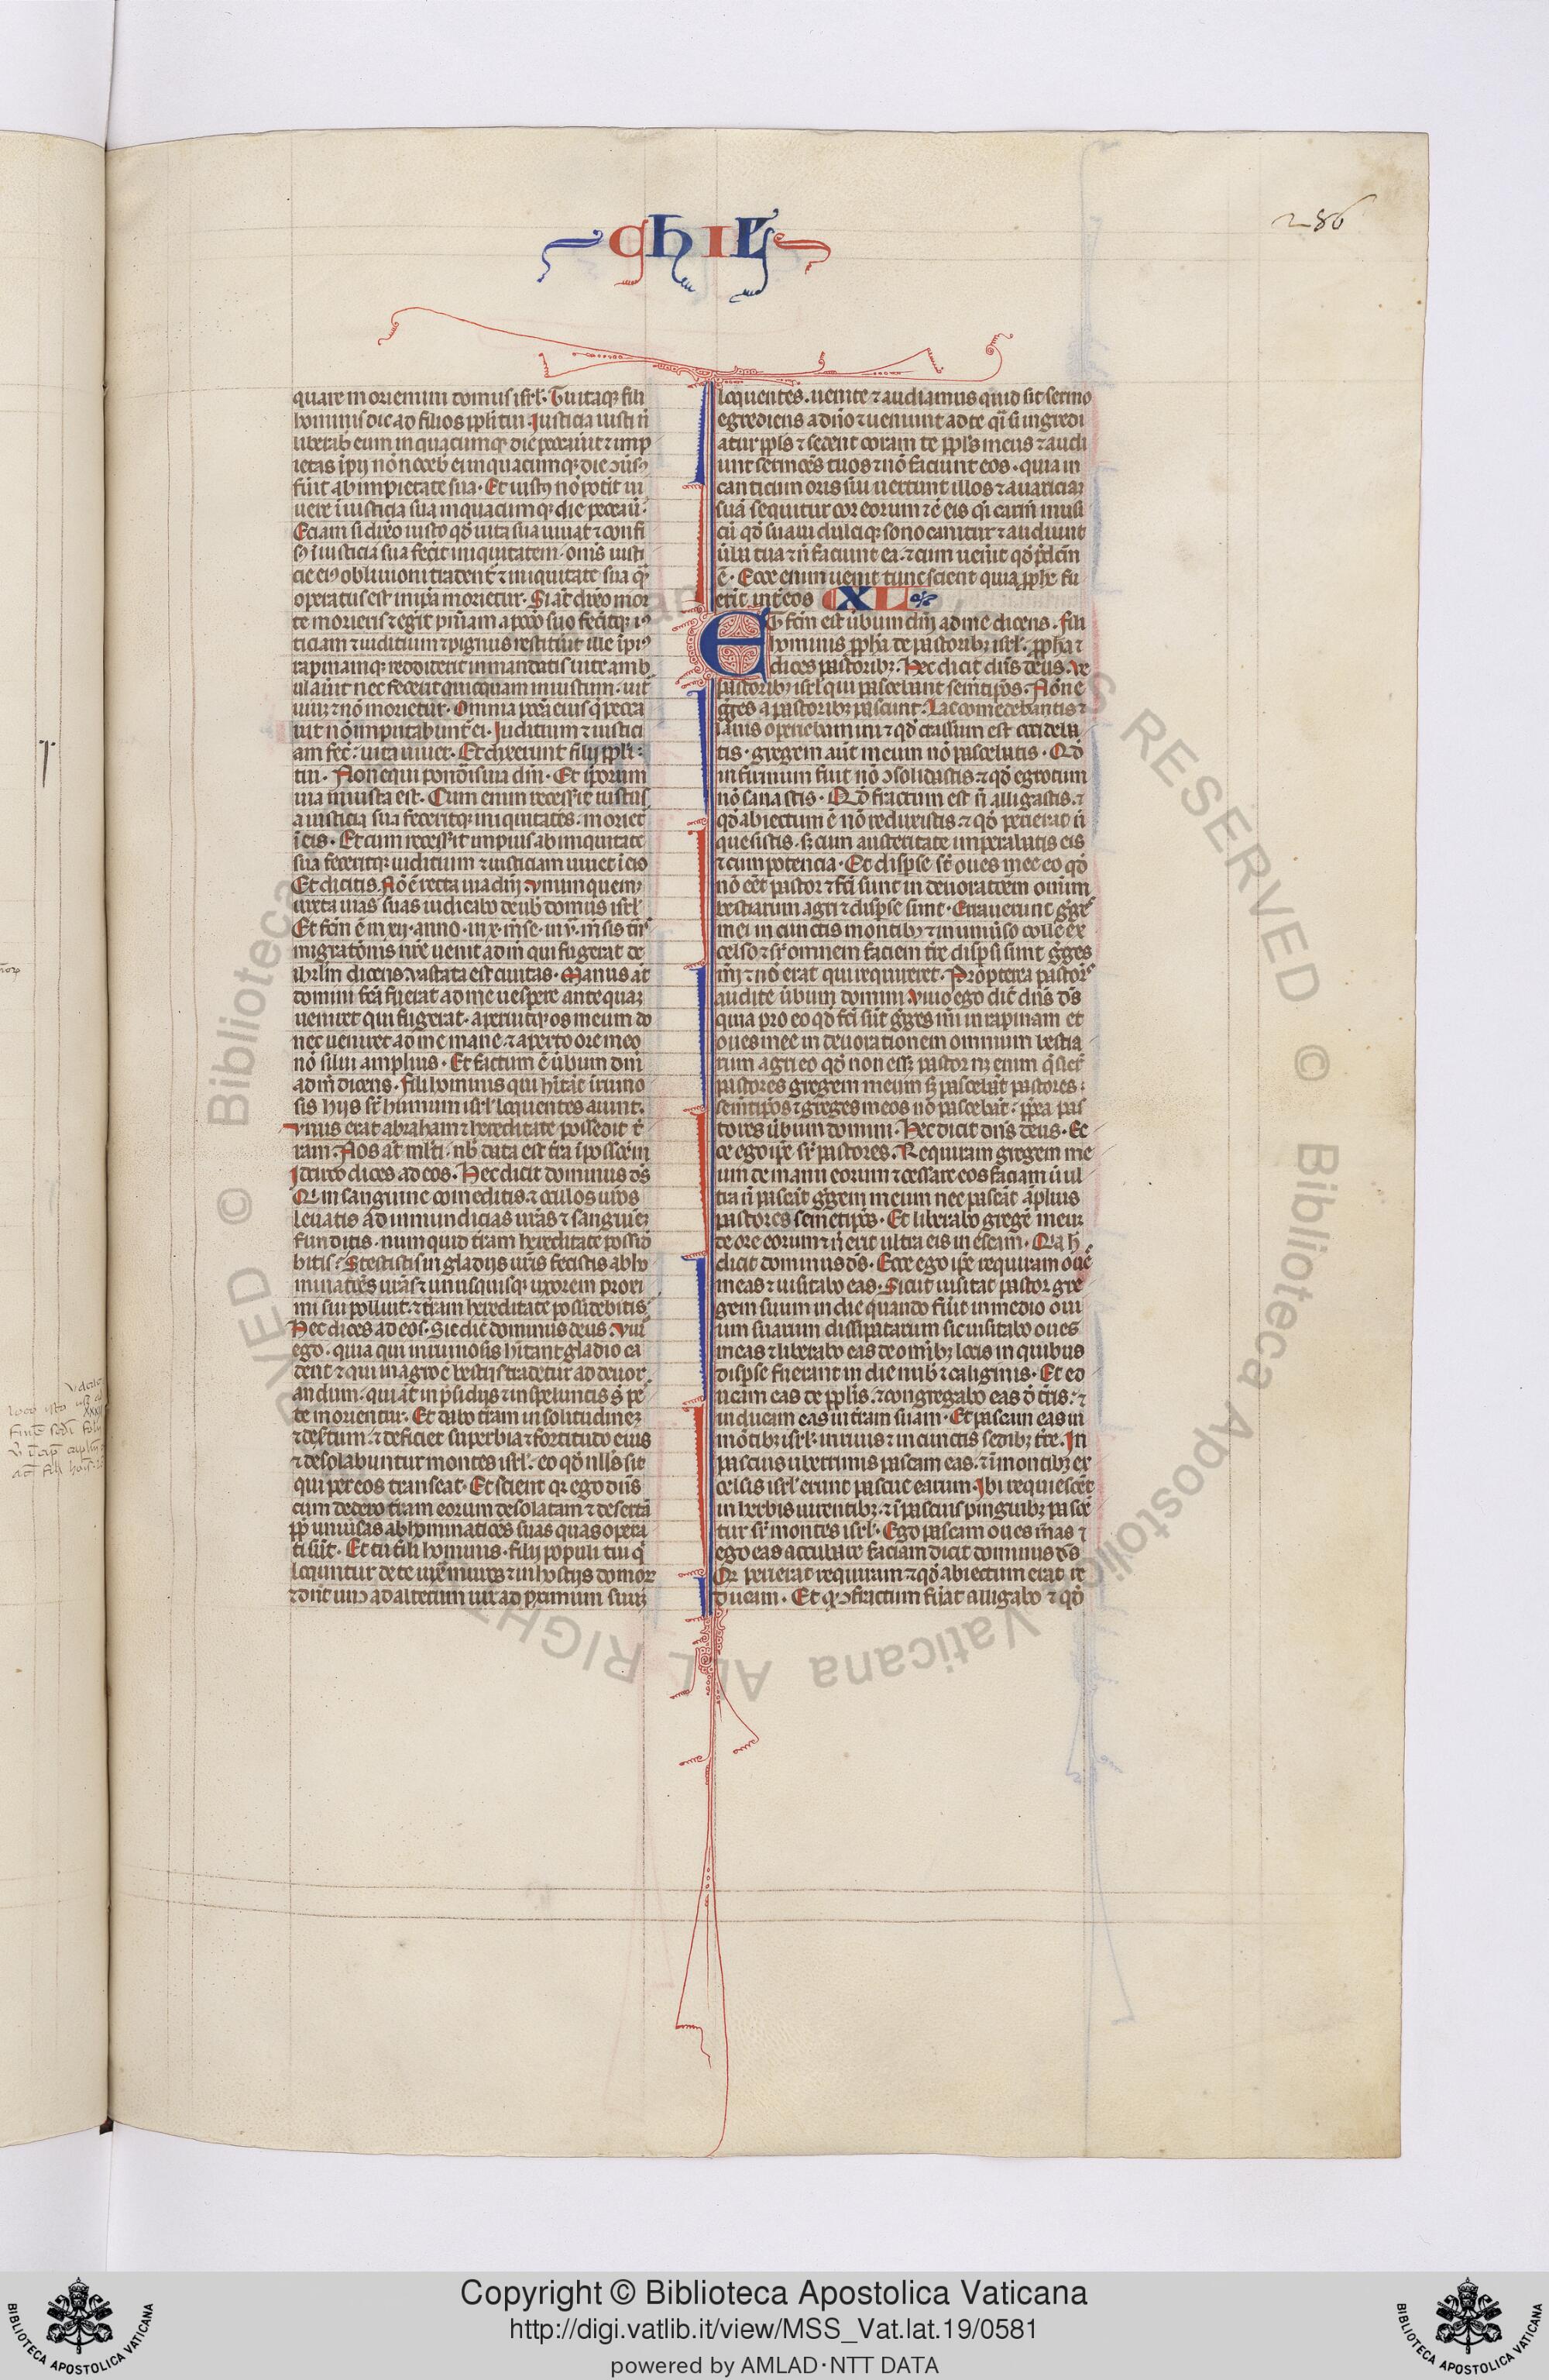 chiel'
286
quare moriemini domus isrl'. Tu itaqꝫ fili
hominis dic ad filios ppl'i tui. Iusticia iusti n̄
liberab eum in quacumqꝫ die peccau'it ⁊ imp
ietas ip̄ii nō noceb ei in quacumqꝫ die ꝯu'sꝰ
fu'it ab impietate sua. Et iustꝰ nō pot'it ui
uere ī iusticia sua in quacumqꝫ die peccau'.
Eciam si dix'o iusto qđ uita sua uiuat ⁊ confi
sꝰ ī iusticia sua fec'it iniquitatem. oms iusti
cie eiꝰ obliuioni tradent' ⁊ iniquitate sua qᷓ
operatus est in ip̄a morietur. Si aūt dix'o mor
te morieris ⁊ eg'it pn̄iam a pccō suo fec'itqꝫ iꝰ
ticiam ⁊ iuditium ⁊ pignus restitu'it ille ip̄iꝰ
rapinamqꝫ reddiderit in mandatis uite amb
ulau'it nec fecerit quicquam iniustum. uit
uiuꝫ ⁊ nō morietur. Omnia pccā eius q̄ pecca
uit nō imputabunt' ei. Iuditium ⁊ iustici
am fec'. uita uiuet. Et dixerunt filij ppl'i
tui. Non equi pond'is uia dn̄i. Et ip̄orum
uia iniusta est. Cum enim recess'it iustus
a iusticia sua feceritqꝫ iniquitates. moriet'
ī eis. Et cum recess'it impius ab iniquitate
sua feceritqꝫ iuditium ⁊ iusticiam uiuet ī eis
Et dicitis Nō ē recta uia dn̄i. Vnumquemqꝫ
iuxta uias suas iudicabo de uob' domus isrl'
Et fcm̄ ē in xij. anno. in x. mēse. in v. mēsis tn̄s
migratōnis nr̄e uenit ad m̄ qui fugerat de
ihrlm dicens vastata est ciuitas. Manus aūt
domini fcā fuerat ad me uespere ante quaꝫ
ueniret qui fugerat. aperuitqꝫ os meum do
nec ueniret ad me mane. ⁊ aperto ore meo
nō silui amplius. Et factum ē u'bum dn̄i
ad m̄ dicens. fili hominis qui hītāt ī ruino
sis hijs sr̄ humum isrl' loquentes aiunt.
vnus erat abraham ⁊ hereditate possedit t'
ram. Nos aūt ml'ti. nob' data est t'ra ī possc̄m
Idcirco dices ad eos. Hec dicit dominus d's
Qui in sanguine comeditis ⁊ oculos ur̄os
leuatis ad inmundicias ur̄as ⁊ sanguineꝫ
funditis. numquid t'ram hereditate possid
bitis? Stestistis in gladijs ur̄is fecistis abho
minatōes ur̄as ⁊ unusquisqꝫ uxorem proxi
mi sui polluit. ⁊ t'ram hereditate possidebitis.
Hec dices ad eos. Sic dic̄ dominus deus. viuo
ego. quia qui in ruinosis hītant gladio ca
dent ⁊ qui in agro ē bestijs tradetur ad deuor
andum. qui aūt in p̄sidijs ⁊ in speluncis s' pe
te morientur. Et dabo t'ram in solitudineꝫ
⁊ des'tum. ⁊ deficiet superbia ⁊ fortitudo eius
⁊ desolabuntur montes isrl'. eo qđ nll's sit
qui per eos transeat. Et scient qꝛ ego dn̄s
cum dedero t'ram eorum desolatam ⁊ desertā
ꝓp uniu'sas abhominatōes suas quas opera
ti sūt. Et tu fili hominis. filij populi tui qͥ
loquntur de te iuxta muros ⁊ in hostijs domoꝝ
⁊ dn̄t unꝰ ad alterum uir ad ꝓximum suuꝫ
loquentes. uenite ⁊ audiamus quid sit sermo
egrediens a dn̄o ⁊ ueniunt ad te qͣsi si ingredi
atur ppl's ⁊ sedent coram te ppl's meus ⁊ audi
unt sermōes tuos ⁊ nō faciunt eos. quia in
canticum oris sui uertunt illos ⁊ auariciaꝫ
suā sequitur cor eorum ⁊ ē eis qͣsi carm̄ musi
cū qđ suaui dulciqꝫ sono canitur ⁊ audiunt
u'ba tua ⁊ n̄ faciunt ea. ⁊ cum uen'it qđ p̄dcm̄
ē. Ecce enim uenit tunc scient quia ꝓphe fu
erit int' eos CXL
ET fcm̄ est u'bum dn̄i ad me dicens. fili
hominis ꝓpha de pastoribꝫ isrl'. ꝓpha ⁊
dices pastoribꝫ. Hec dicit dn̄s deus. Ve
pastoribꝫ isrl' qui pascebant semetip̄os. Nōne
gͤges a pastoribꝫ pascunt'. Lac comedebantis ⁊
lanis operiebamini ⁊ qđ crassum est occideba
tis. gregem aūt meum nō pascebatis. Qđ
infirmum fuit nō ꝯsolidastis ⁊ qđ egrotum
nō sanastis. Qđ fractum est n̄ alligastis. ⁊
qđ abiectum ē nō reduxistis ⁊ qđ perierat n̄
quesistis. sꝫ cum austeritate imperabatis eis
⁊ cum potencia. Et disp̄se sūt oues mee eo qđ
nō eēt pastor ⁊ fcē sunt in deuoratōem omium
bestiarum agri ⁊ disp̄se sunt. Errauerunt gͤges
mei in cunctis montibꝫ ⁊ in uniu'so colle ex
celso ⁊ sr̄ omnem faciem t're disp̄si sunt gͤges
mī ⁊ nō erat qui requireret. Propterea pastorˢ
audite u'bum domini viuo ego dic̄ dn̄s d's
quia pro eo qđ fcī sūt gͤges mī in rapinam et
oues mee in deuorationem omnium bestia
rum agri eo qđ non esset pastor nꝫ enim qͥsier'
pastores gregem meum sꝫ pascebāt pastores.
semetip̄os ⁊ greges meos nō pascebāt. ꝓpea pas
tores u'bum domini. Hec dicit dn̄s deus. Ec
ce ego ip̄e sr̄ pastores. Requiram gregem me
um de manu eorum ⁊ cessare eos faciam ut ul
tra n̄ pascāt gͤgem meum nec pascāt āplius
pastores semetip̄os. Et liberabo gregē meuꝫ
de ore eorum ⁊ n̄ erit ultra eis in escam. Qia h'
dicit dominus d's. Ecce ego ip̄e requiram oues
meas ⁊ uisitabo eas. Sicut uisitat pastor gre
gem suum in die quando fu'it in medio oui
um suarum dissipatarum sic uisitabo oues
meas ⁊ liberabo eas de omībꝫ locis in quibus
disp̄se fuerant in die nub' ⁊ caliginis. Et ed
ucam eas de ppl'is. ⁊ congregabo eas d' t'ris. ⁊
inducam eas in t'ram suam. Et pascam eas in
mōtibꝫ isrl'. in riuis ⁊ in cunctis sedibꝫ t're. In
pascuis uberrimis pascam eas. ⁊ ī montibꝫ ex
celsis isrl' erunt pascue earum. Ibi requiescēt
in herbis uirentibꝫ. ⁊ ī pascuis pinguibꝫ pascē
tur sr̄ montes isrl'. Ego pascam oues meas ⁊
ego eas accubare faciam dicit dominus d's
Qđ perierat requiram ⁊ qđ abiectum erat re
ducam. Et qđ ꝯfractum fu'at alligabo ⁊ qđ
Copyright © Biblioteca Apostolica Vaticana
http://digi.vatlib.it/view/MSS_Vat.lat.19/0581
powered by AMLAD·NTT DATA
BIBLIOTECA APOSTOLICA VATICANA
BIBLIOTECA APOSTOLICA VATICANA
© Biblioteca Apostolica Vaticana ALL RIGHTS RESERVED